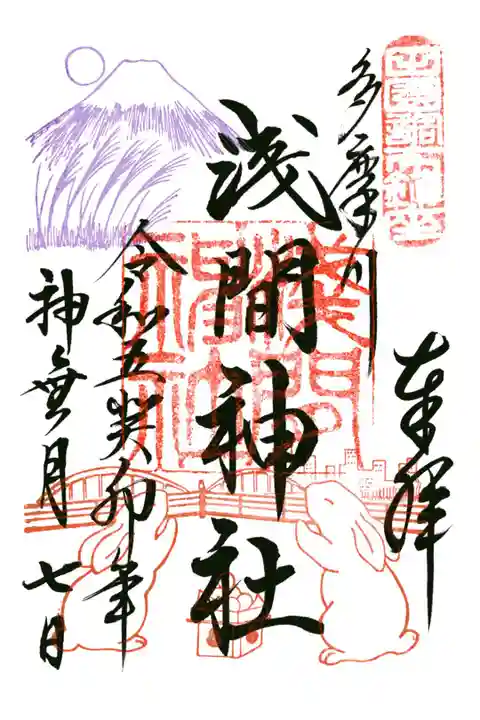 奉拝
多摩川
浅間神社
令和五癸卯年
神無月
七日